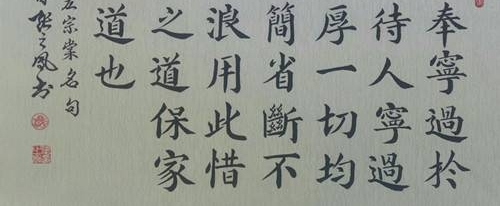 奉寧過於
待人寧過
厚一切均
簡省斷不
浪用此惜
之道保家
道也
左宗棠名句